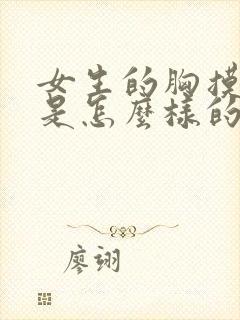 女生的胸摸
是怎麼樣的
廖翊